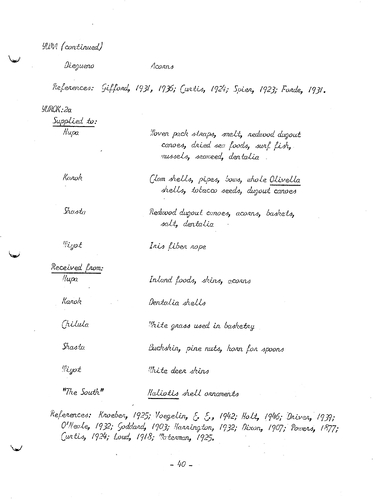 YUMA (continued)
Diegueno Acorns
References: Gifford, 1931, 1936; Curtis, 1924; Spier, 1923; Forde, 1931.
YUROK:2a
Supplied to:
Hupa Woven pack straps, smelt, redwood dugout
canoes, dried sea foods, surf fish,
mussels, seaweed, dentalia
Karok Clam shells, pipes, bows, whole Olivella
shells, tobacco seeds, dugout canoes
Shasta Redwood dugout canoes, acorns, baskets,
salt, dentalia
Wiyot Iris fiber rope
Received from:
Hupa Inland foods, skins, acorns
Karok Dentalia shells
Chilula White grass used in basketry
Shasta Buckskin, pine nuts, horn for spoons
Wiyot White deer skins
"The South" Haliotis shell ornaments
References: Kroeber, 1925; Voegelin, E. E., 1942; Holt, 1946; Driver, 1939;
O'Neale, 1932; Goddard, 1903; Harrington, 1932; Dixon, 1907; Powers, 1877;
Curtis, 1924; Loud, 1918; Waterman, 1925.
- 40 -